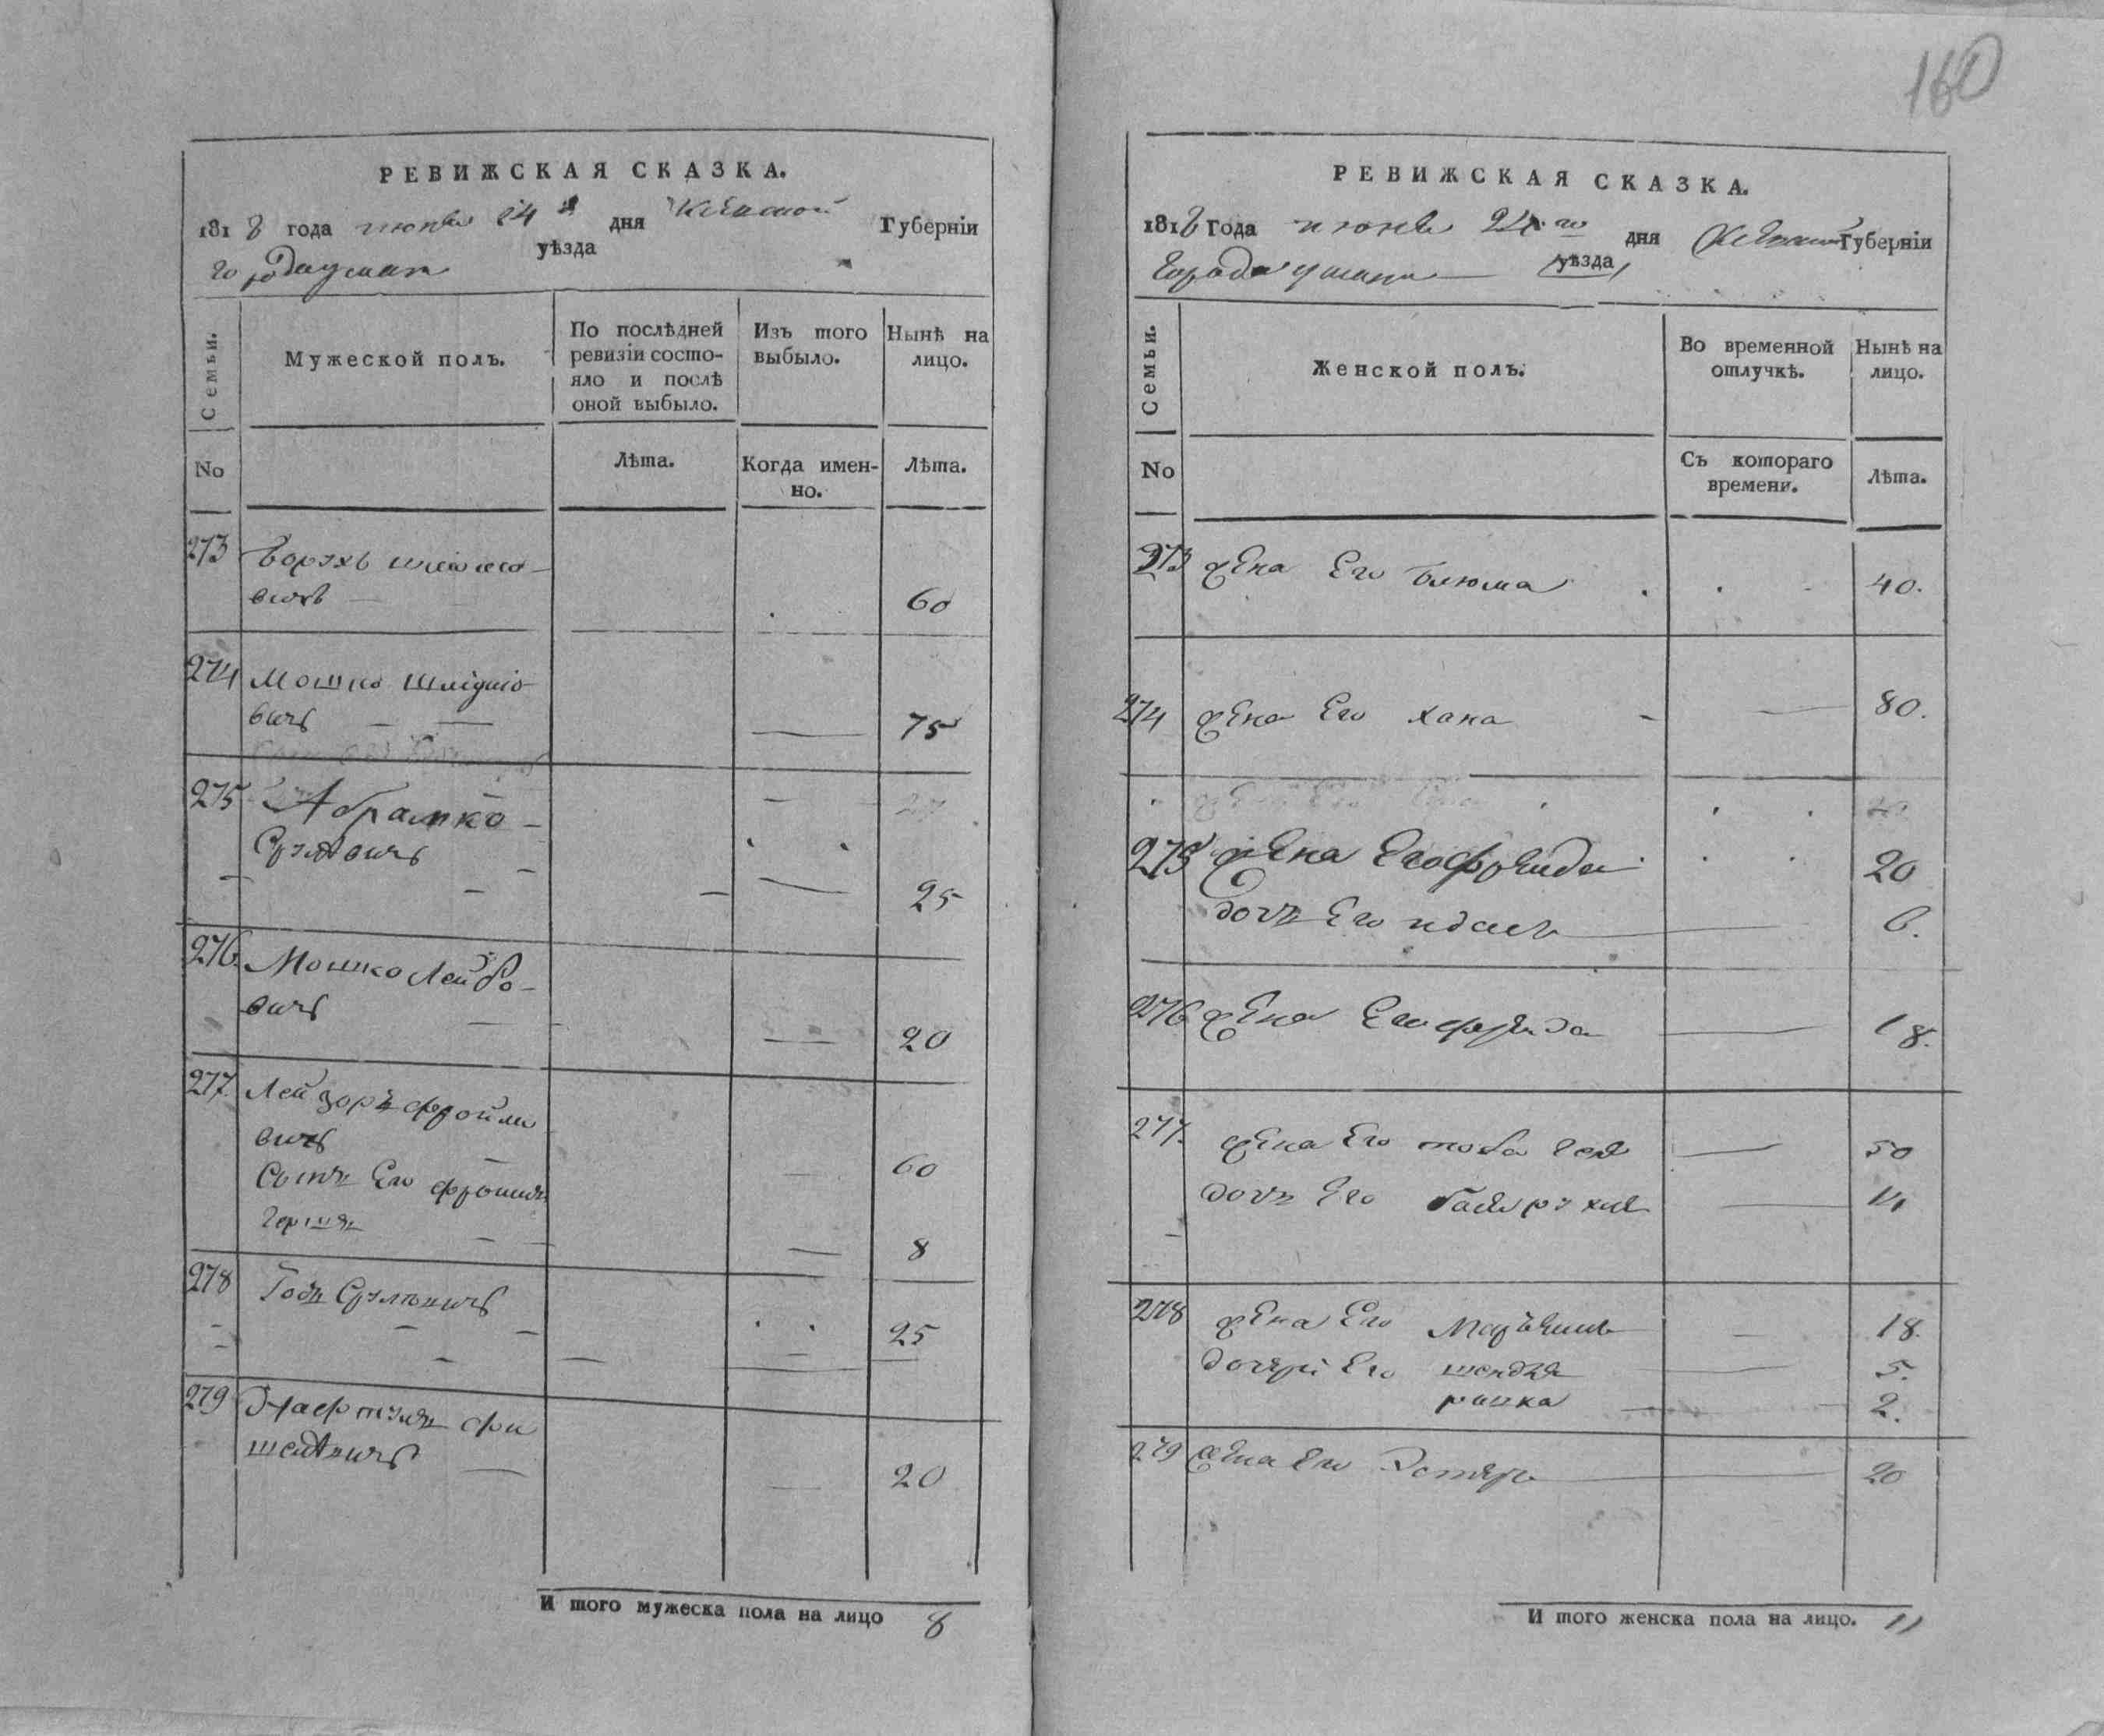 160
РЕВИЖСКАЯ СКАЗКА.
1818 года июня 24 дня Киевской Губерніи
уѣзда
города уманя
Семьи.
Мужеской полъ.
По послѣдней
ревизіи состо-
яло и послѣ
оной выбыло.
Изъ того
выбыло.
Нынѣ на
лицо.
No
Лѣта.
Когда имен-
но.
Лѣта.
273 Борухъ
вичъ 60
274 Мошко
вичъ 75
275 Абрамко
Срулевичъ
25
276. Мошко Лейбо-
вичъ
20
277. Лейзоръ Фроймо
вичъ
60
Сынъ Его Фроимъ
Гершъ
8
278 Срулевичъ
25
279
20
И того мужеска пола на лицо 8
РЕВИЖСКАЯ СКАЗКА.
1818 Года июня 24 го дня Киевской Губерніи
уѣзда
Города уманя
Семьи.
Женской полъ.
Во временной
отлучкѣ.
Нынѣ на
лицо.
No
Съ котораго
времени.
Лѣта.
273 жена Его Блюма 40.
274 жена Его Хана 80.
275 жена Его Фрейда 20
дочь Его 6.
276 жена Его Фрейда 18.
277. жена Его 50
дочь Его 14
278 жена Его 18.
дочери Его 5.
2.
279 жена Его Эстеръ 20
И того женска пола на лицо. 11